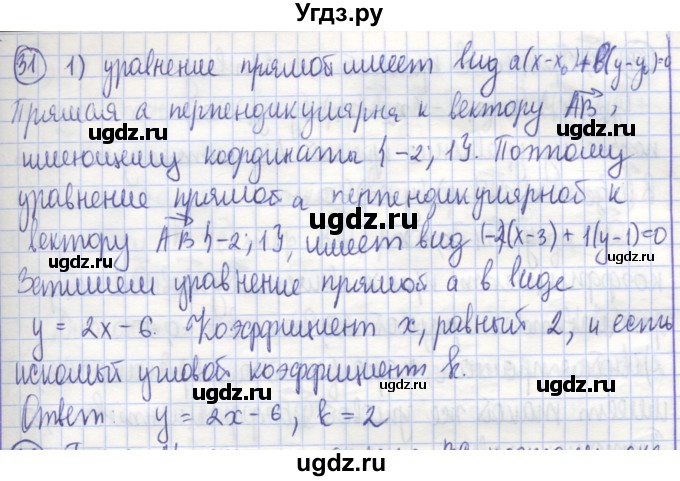 Угдз.ру
31 1) уравнение прямой имеет вид a(x-x₀)+b(y-y₀)=0
Прямая a перпендикулярна к вектору AB,
имеющему координаты {-2; 1}. Поэтому
уравнение прямой a перпендикулярной к
вектору AB {-2; 1}, имеет вид (-2)(x-3) + 1(y-1)=0
Запишем уравнение прямой a в виде
y = 2x-6. Коэффициент x, равный 2, и есть
искомый угловой коэффициент k.
Ответ: y = 2x-6, k=2
ugdz.ru
ugdz.ru
ugdz.ru
ugdz.ru
ugdz.ru
ugdz.ru
ugdz.ru
ugdz.ru
ugdz.ru
ugdz.ru
ugdz.ru
ugdz.ru